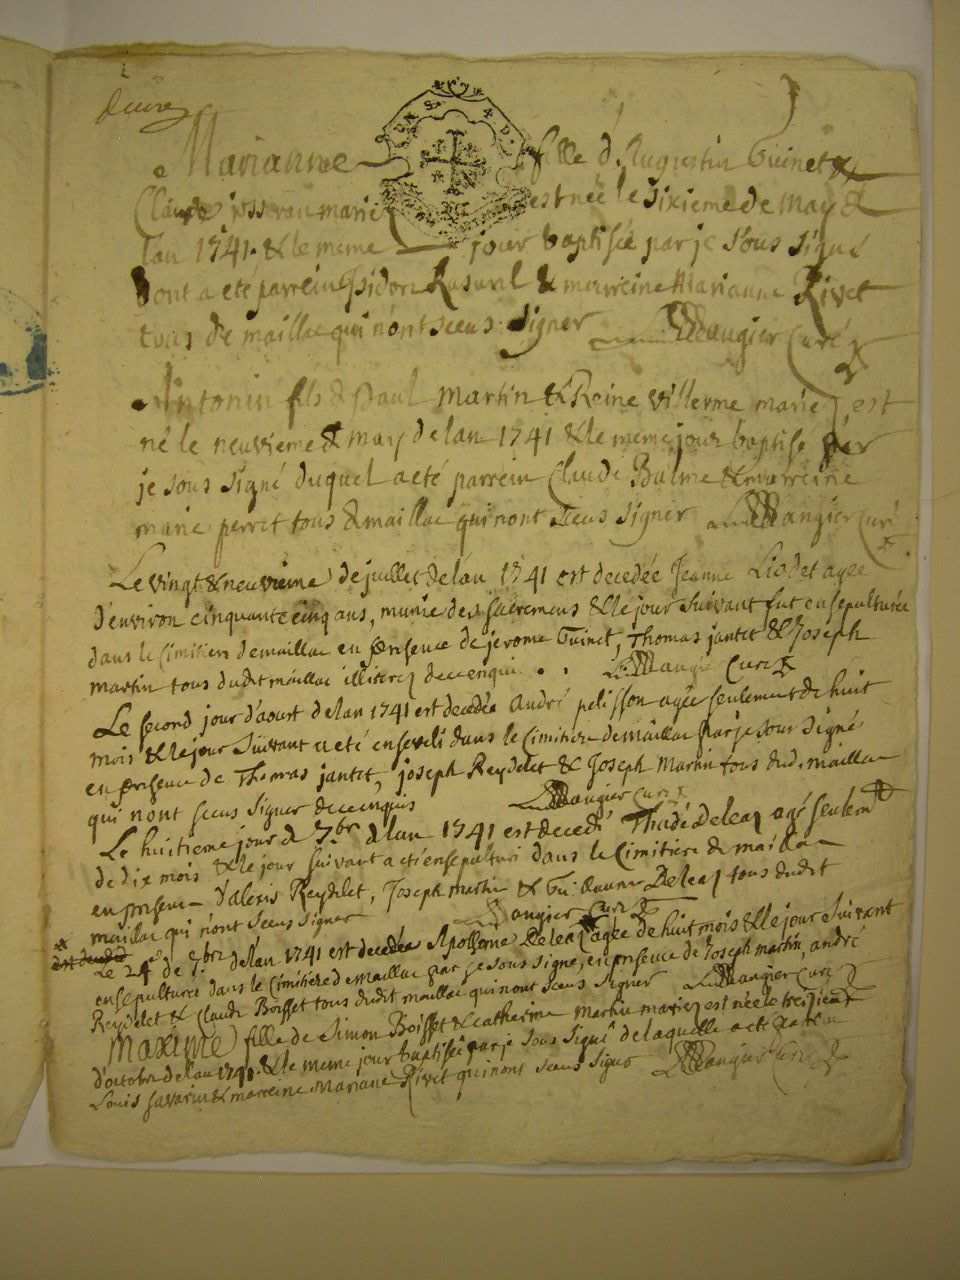 deux
Marianne fille d'Augustin Guinet &
Claude mariez est née le Sixieme de May de
lan 1741 & le meme jour baptisée par je sous signé
dont a eté parrein Isidore & marreine Marianne Rivet
tous de maillac qui n'ont sceus signer Maugier Curé
Antonin fils de Paul Martin & Reine villerme mariez est
né le neuvieme de may de lan 1741 & le meme jour baptisé par
je sous signé duquel a eté parrein Claude Balme & marreine
marie perret tous de maillac qui nont sceus signer Maugier Curé
Le vingt & neuvieme de juillet de lan 1741 est decedée Jeanne Liodet agée
d'environ cinquante cinq ans, munie des sacremens & le jour suivant fut ensepulturée
dans le Cimitiere de maillac en presence de jerome Guinet, Thomas jantet & Joseph
martin tous dudit maillac illiterez de ce enquis Maugier Curé
Le second jour d'aoust de lan 1741 est decedée André pelisson agée seulement de huit
mois & le jour suivant a eté enseveli dans le Cimitiere de maillac par je sous signé
en presence de Thomas jantet, joseph Reydelet & Joseph Martin tous dud. maillac
qui nont sceus signer de ce enquis Maugier curé
Le huitieme jour de 7bre de lan 1741 est decedé Thadé Deleaz agé seulemt
de dix mois & le jour suivant a eté ensepulturé dans le Cimitiere de maillac
en presence d'alexis Reydelet, Joseph martin & Deleaz tous dudit
maillac qui n'ont sceus signer Maugier Curé
Le 24e de 7bre de lan 1741 est decedée Apollonie Deleaz agée de huit mois & le jour suivant
ensepulturée dans le Cimitiere de maillac par je sous signé, en presence de Joseph martin, andré
Reydelet & Claude Boisset tous dudit maillac qui nont sceus signer Maugier Curé
Maxime fille de Simon Boisset & Catherine Martin mariez est née le treizieme
d'octobre de lan 1741 & le meme jour baptisée par je sous signé de laquelle a eté parrein
Louis savarin & marreine Mariane Rivet qui nont sceus signer Maugier Curé